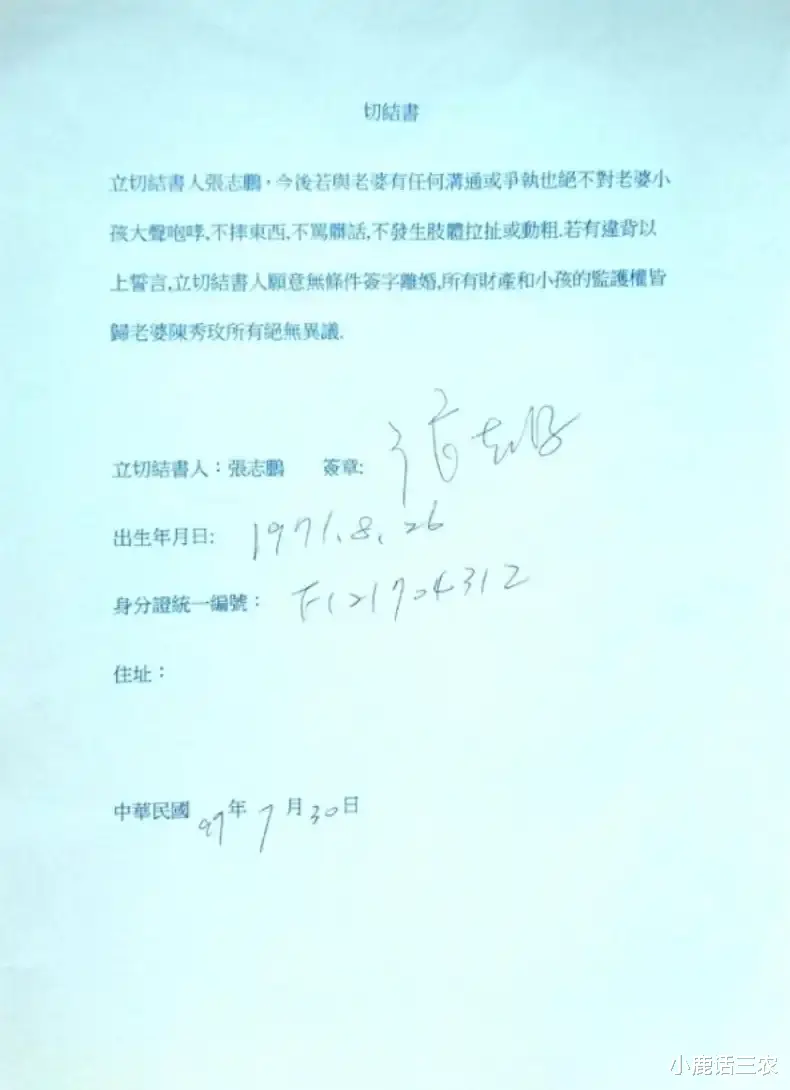 切結書
立切結書人張志鵬，今後若與老婆有任何溝通或爭執也絕不對老婆小
孩大聲咆哮,不摔東西,不罵髒話,不發生肢體拉扯或動粗.若有違背以
上誓言,立切結書人願意無條件簽字離婚,所有財產和小孩的監護權皆
歸老婆陳秀玫所有絕無異議.
立切結書人：張志鵬 簽章: 張志鵬
出生年月日: 1971.8.26
身分證統一編號： F121704312
住址：
中華民國 97年 7月30日
小鹿话三农